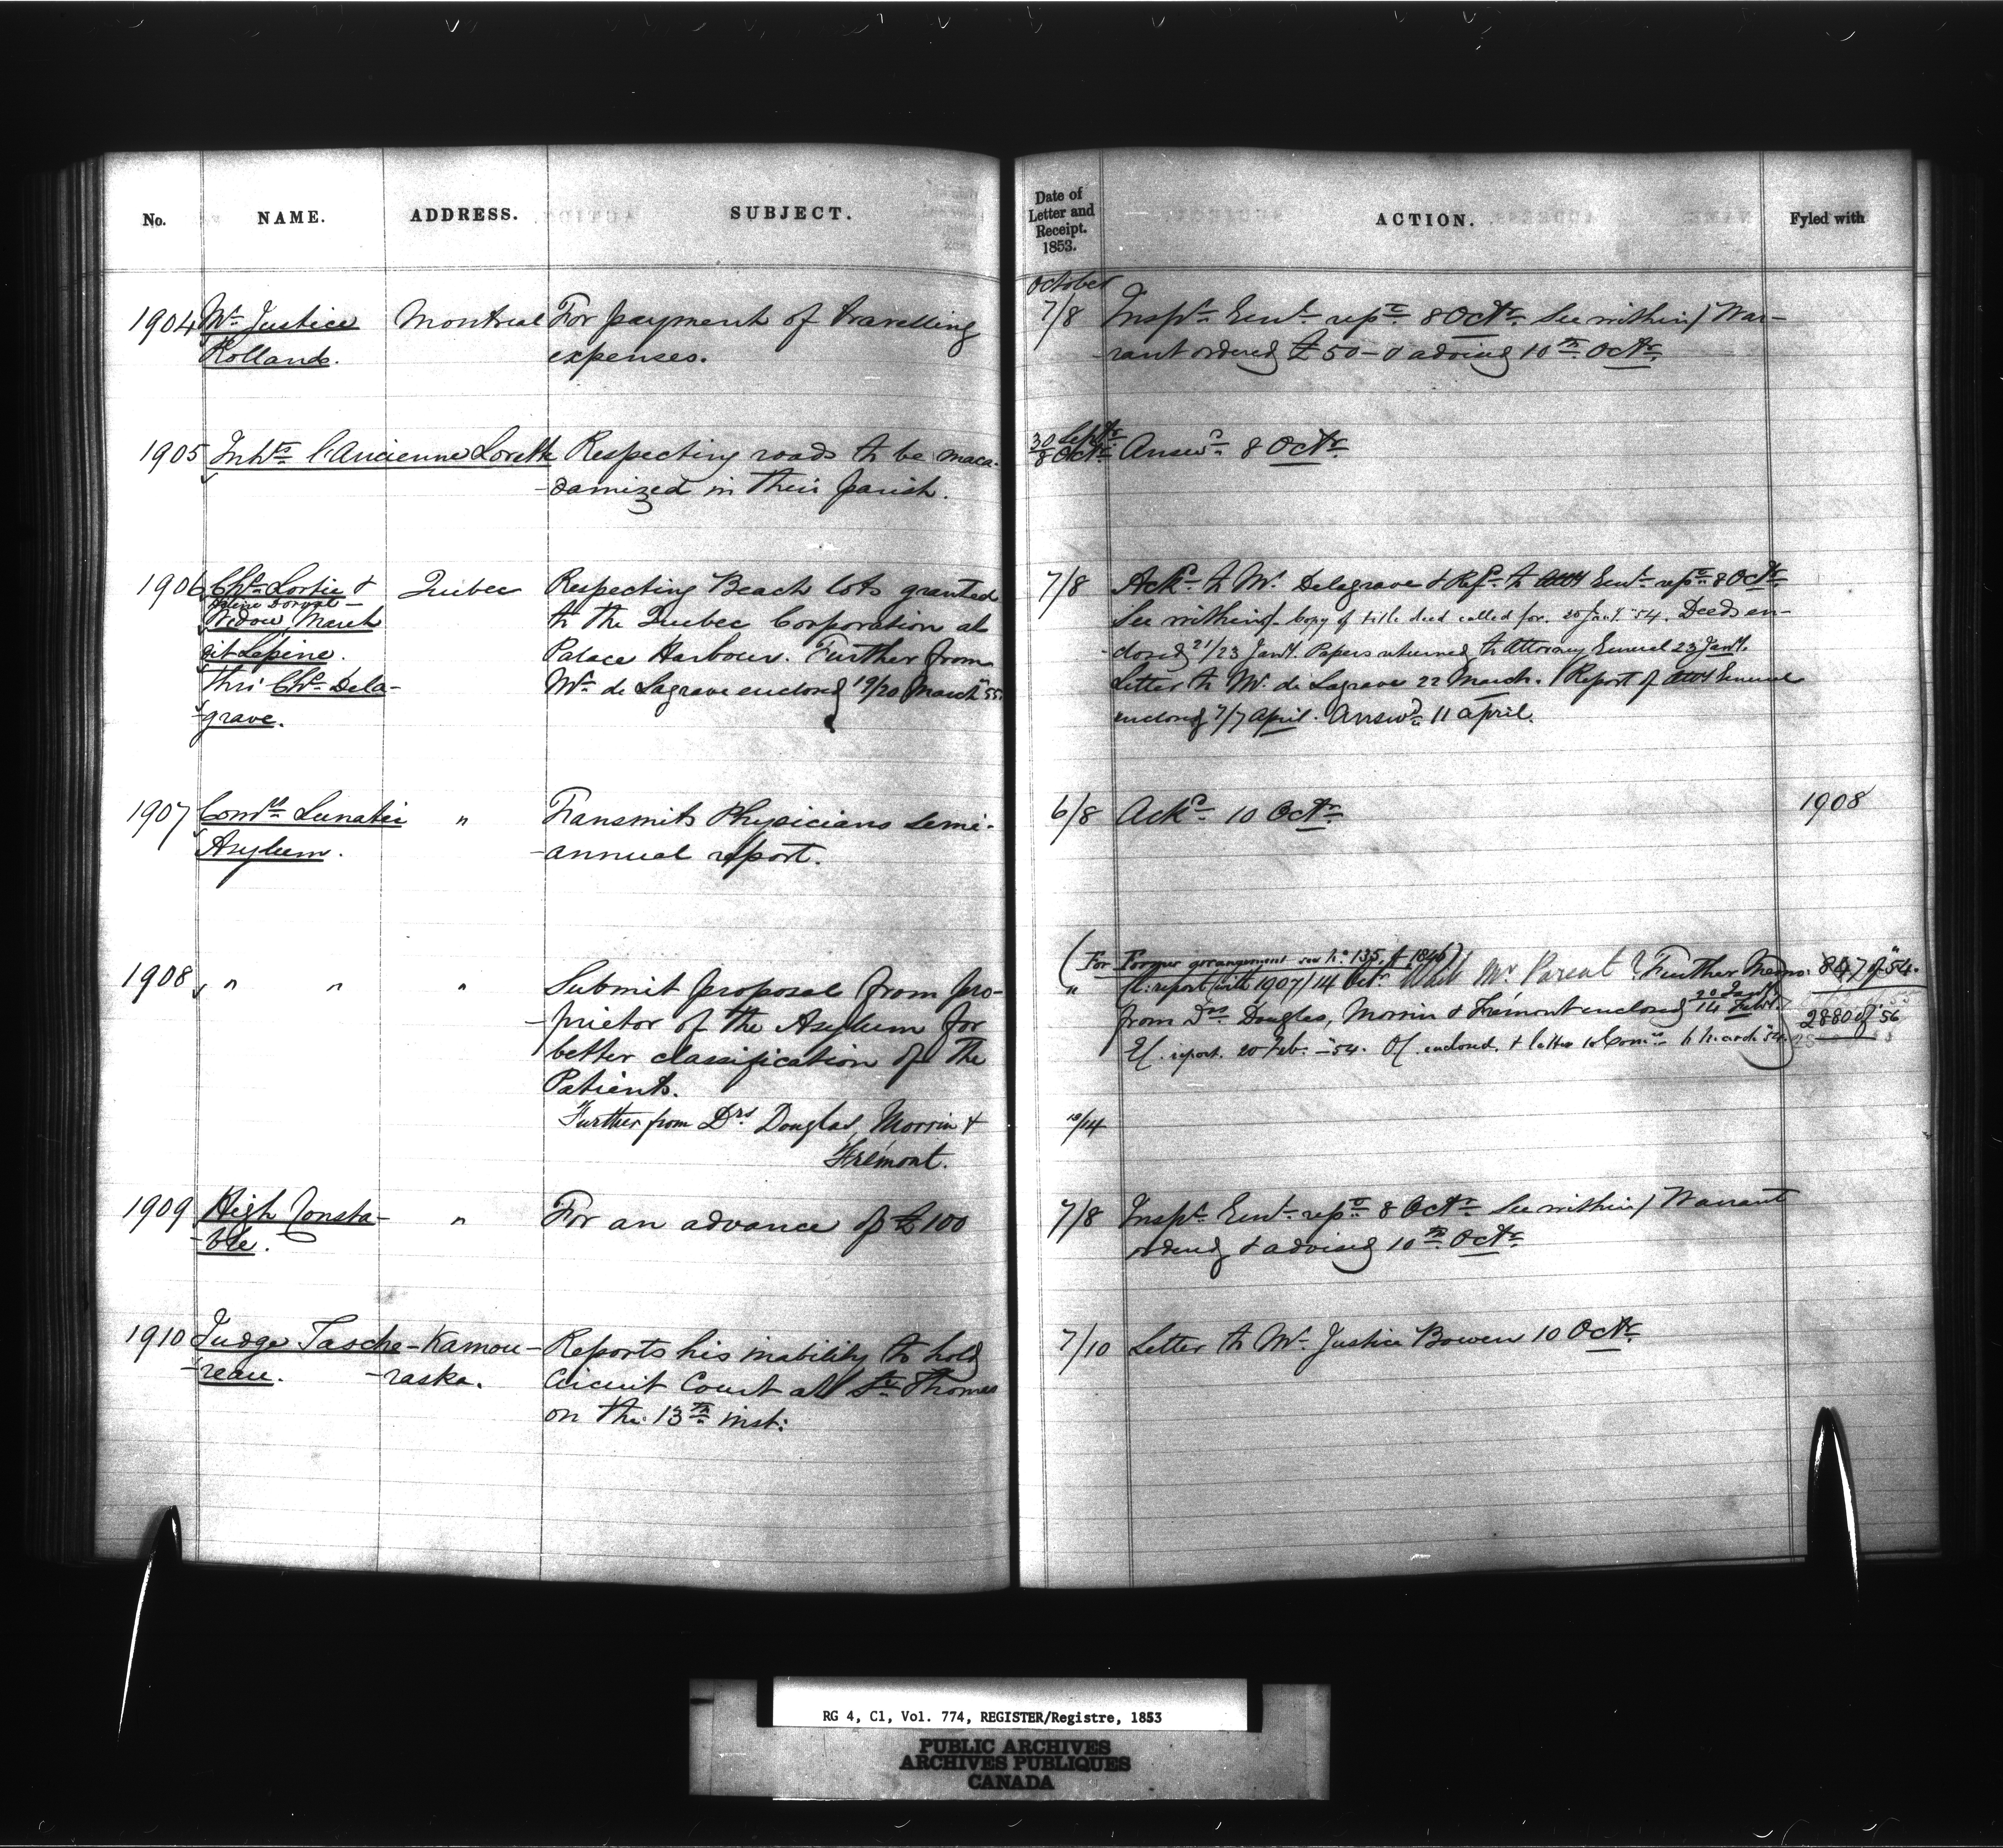 No. NAME. ADDRESS. SUBJECT.
1904 Mr. Justice Montreal For payment of travelling
Rolland. expenses.
1905 Inhts. l'Ancienne Lorette Respecting roads to be maca-
-damized in their parish.
1906 Chs. Lortie & Quebec Respecting Beach lots granted
Dorval - to the Quebec Corporation at
Widow March
dit Lepine. Palace Harbour. Further from
thro' Chs. Dela- Mr. de Lagrave enclosed 19/20 March '55.
-grave.
1907 Comrs. Lunatic " Transmits Physicians semi-
Asylum. -annual report.
1908 " " " Submit proposal from pro-
-prietor of the Asylum for
better classification of the
Patients.
Further from Drs Douglas, Morrin &
Frémont.
1909 High Consta- " For an advance of £100
-ble.
1910 Judge Tasche- Kamou- Reports his inability to hold
-reau. -raska. Circuit Court at St. Thomas
on the 13th inst:
Date of
Letter and
Receipt.
1853. ACTION. Fyled with
October
7/8 Inspr. Genl. repd. 8 Octr. See within / War-
-rant ordered £50 - & advised 10th Octr.
30 Septr.
8 Octr. Answd. 8 Octr.
7/8 Ackd. to Mr. Delagrave & Refd. to Atty Genl. repd. 8 Octr.
See within / Copy of title deed called for. 20 Jany. '54. Deeds en-
-closed 21/23 Jany. Papers returned to Attorney General 23 Jany.
Letter to Mr. de Lagrave 22 March. / Report of Atty General
enclosed 7/7 April. Answd. 11 April.
6/8 Ackd. 10 Octr. 1908
(For Former arrangement see No. 135 of 1846)
" report with 1907/14 Octr. Wait Mr Parent? Further Memo. 847 of '54.
from Drs. Douglas, Morrin & Frémont enclosed 20 Jany. 14 Feby. 2880 of 56
report. 20 Feb. - 54. enclosed. & letter to Comrs.
/14
7/8 Inspr. Genl. repd. 8 Octr. See within / Warrant
ordered & advised 10th Octr.
7/10 Letter to Mr. Justice Bowen 10 Octr.
RG 4, C1, Vol. 774, REGISTER/Registre, 1853
PUBLIC ARCHIVES
ARCHIVES PUBLIQUES
CANADA